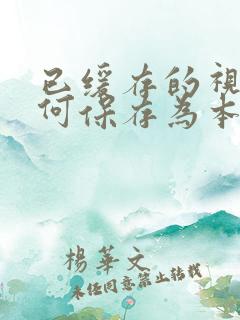 已缓存的視
何保存為本
楊華文
未经同意禁止转载